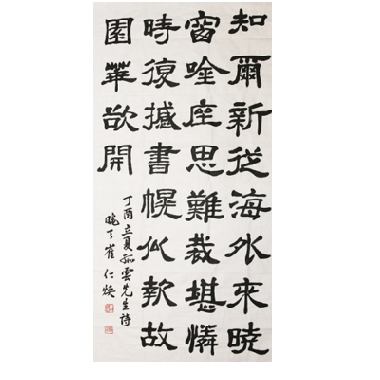 知爾新從海外來曉
窗吟座思難裁堪憐
時復攄書幌似款故
園華欲開
丁酉立夏孤雲先生詩
崔仁煥